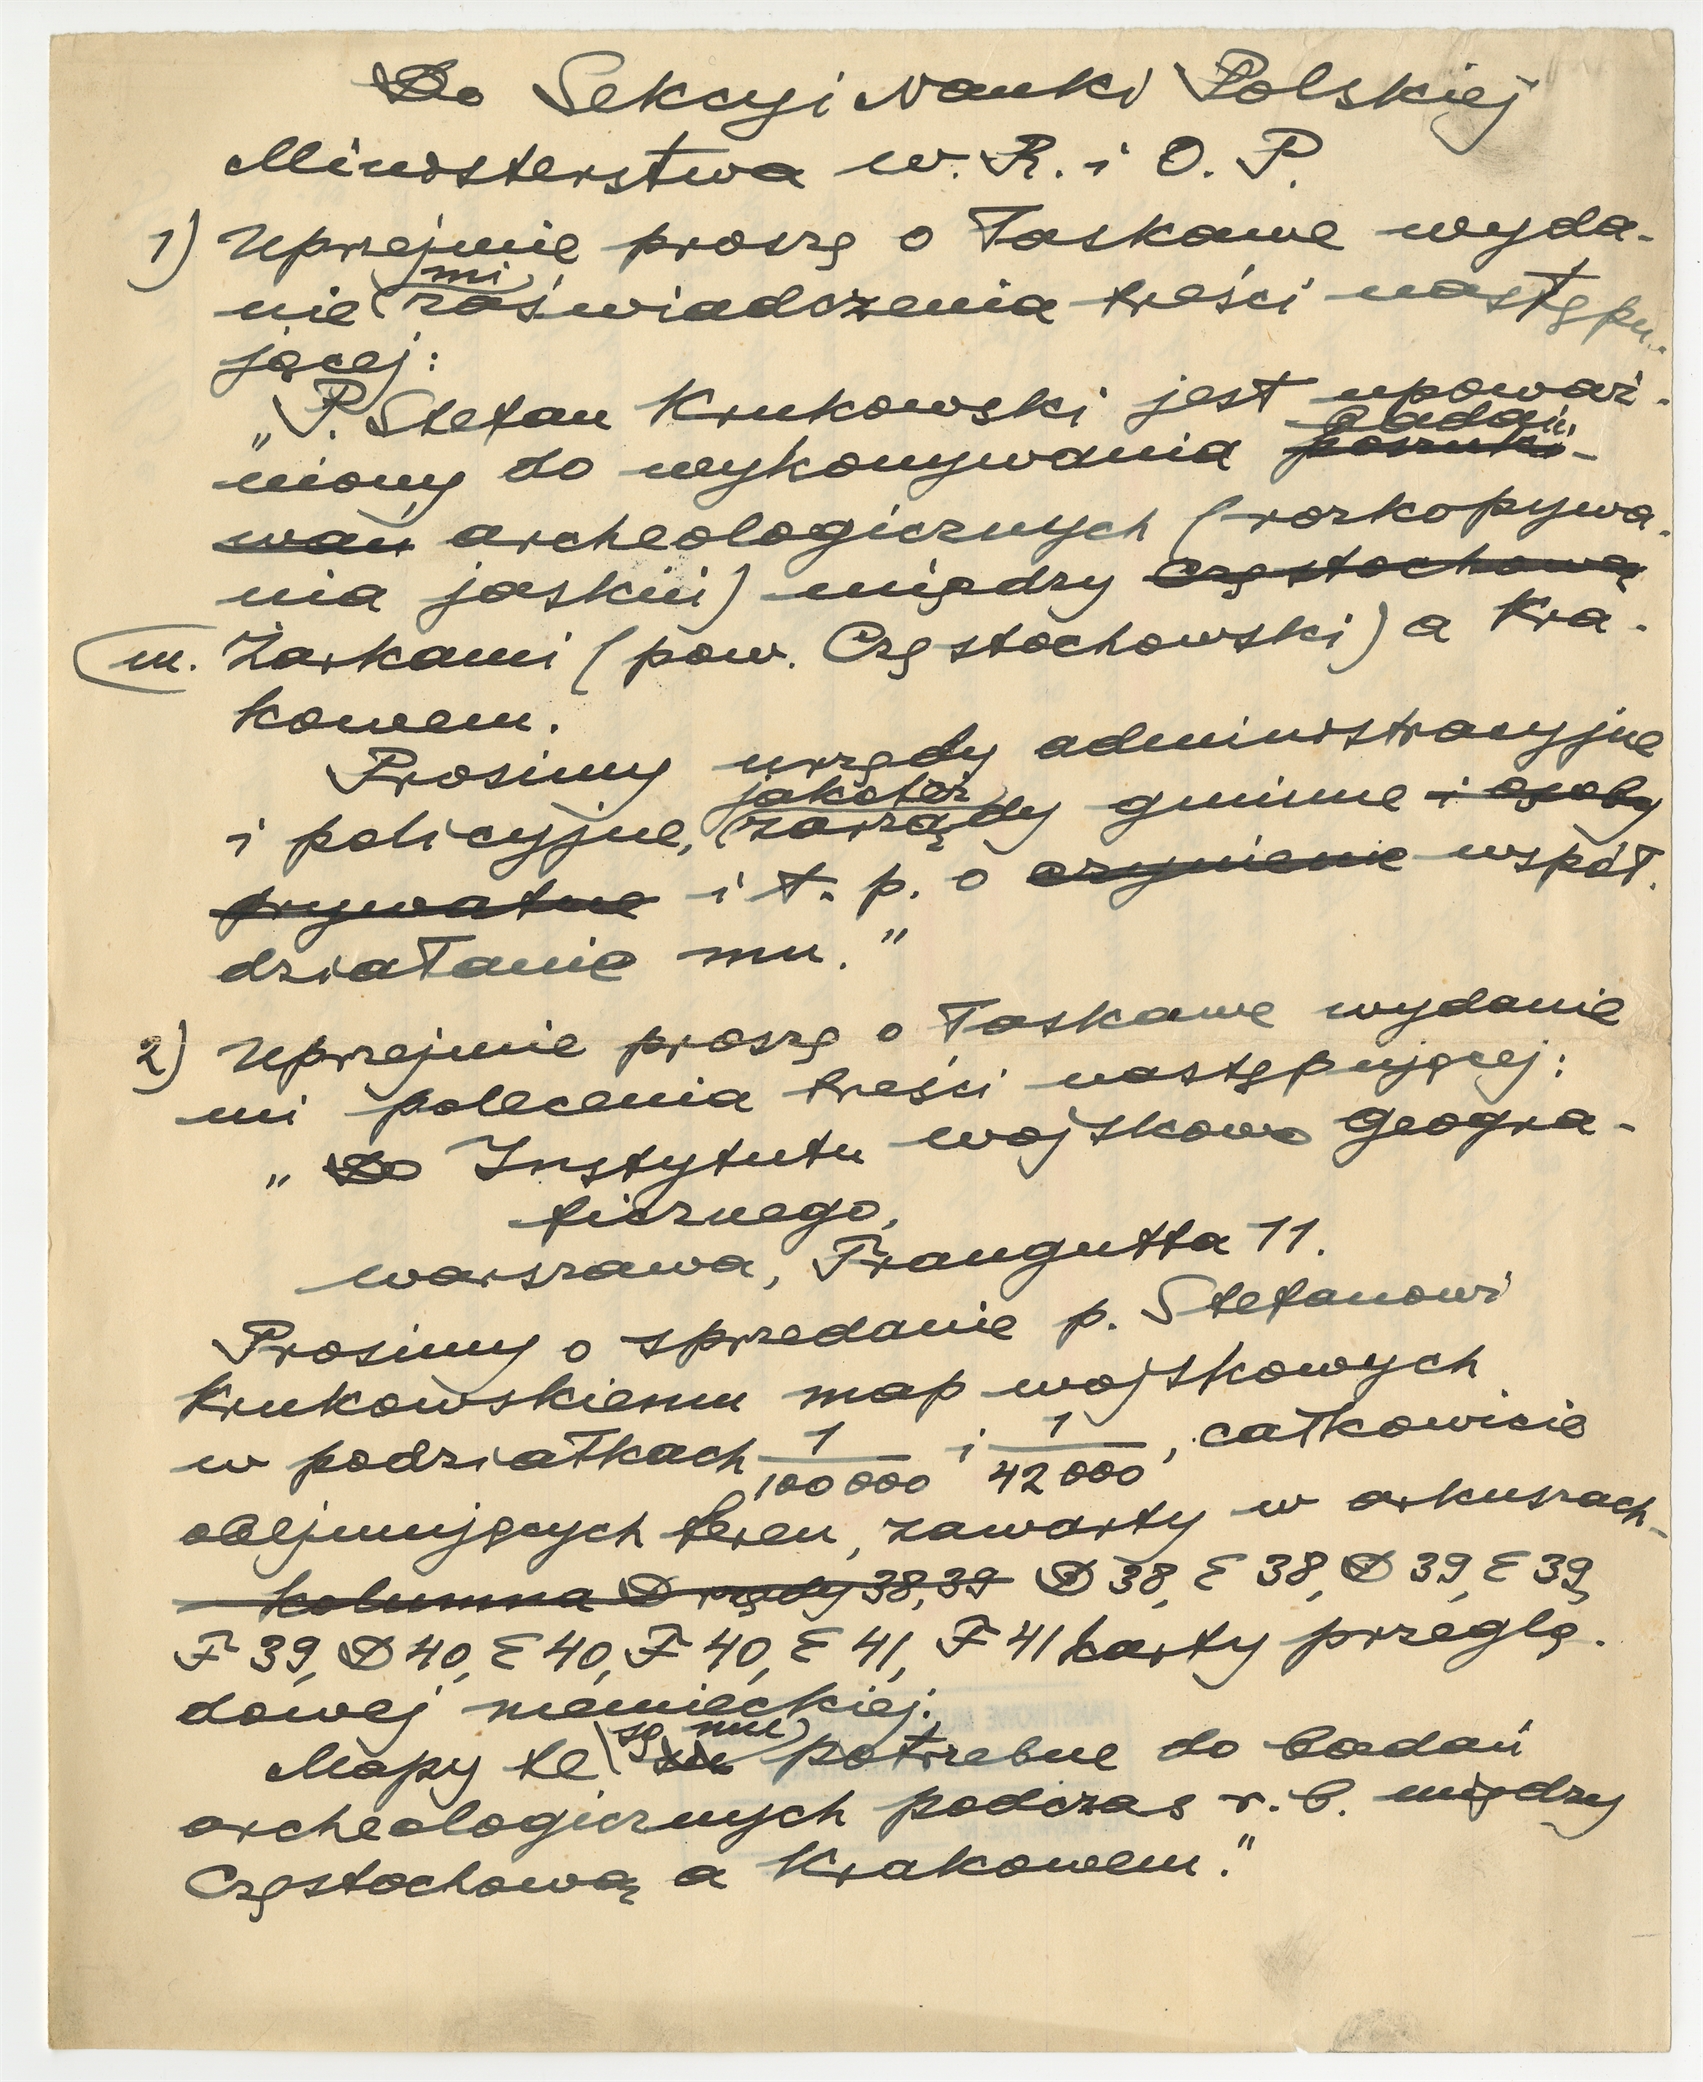 Do Sekcyi Nauki Polskiej
Ministerstwa W. R. i O. P.
1) Uprzejmie proszę o łaskawe wyda-
nie mi zaświadczenia treści następu-
jącej:
„P. Stefan Krukowski jest upoważ-
niony do wykonywania poszuki- badań
wań archeologicznych (rozkopywa-
nia jaskiń) między Częstochową
m. Żarkami (pow. Częstochowski) a Kra-
kowem.
Prosimy urzędy administracyjne
i policyjne, jakoteż zarządy gminne i osoby
prywatne i t. p. o czynienie współ-
działanie mu."
2) Uprzejmie proszę o łaskawe wydanie
mi polecenia treści następującej:
„Do Instytutu wojskowo geogra-
ficznego,
Warszawa, Traugutta 11.
Prosimy o sprzedanie p. Stefanowi
Krukowskiemu map wojskowych
w podziałkach 1/100000 i 1/42000, całkowicie
obejmujących teren, zawarty w arkuszach
kolumna D rzędy 38, 39 D 38, E 38, D 39, E 39,
F 39, D 40, E 40, F 40, E 41, F 41 karty przeglą-
dowej niemieckiej.
Mapy te są mu potrzebne do badań
archeologicznych podczas r. b. między
Częstochową a Krakowem."